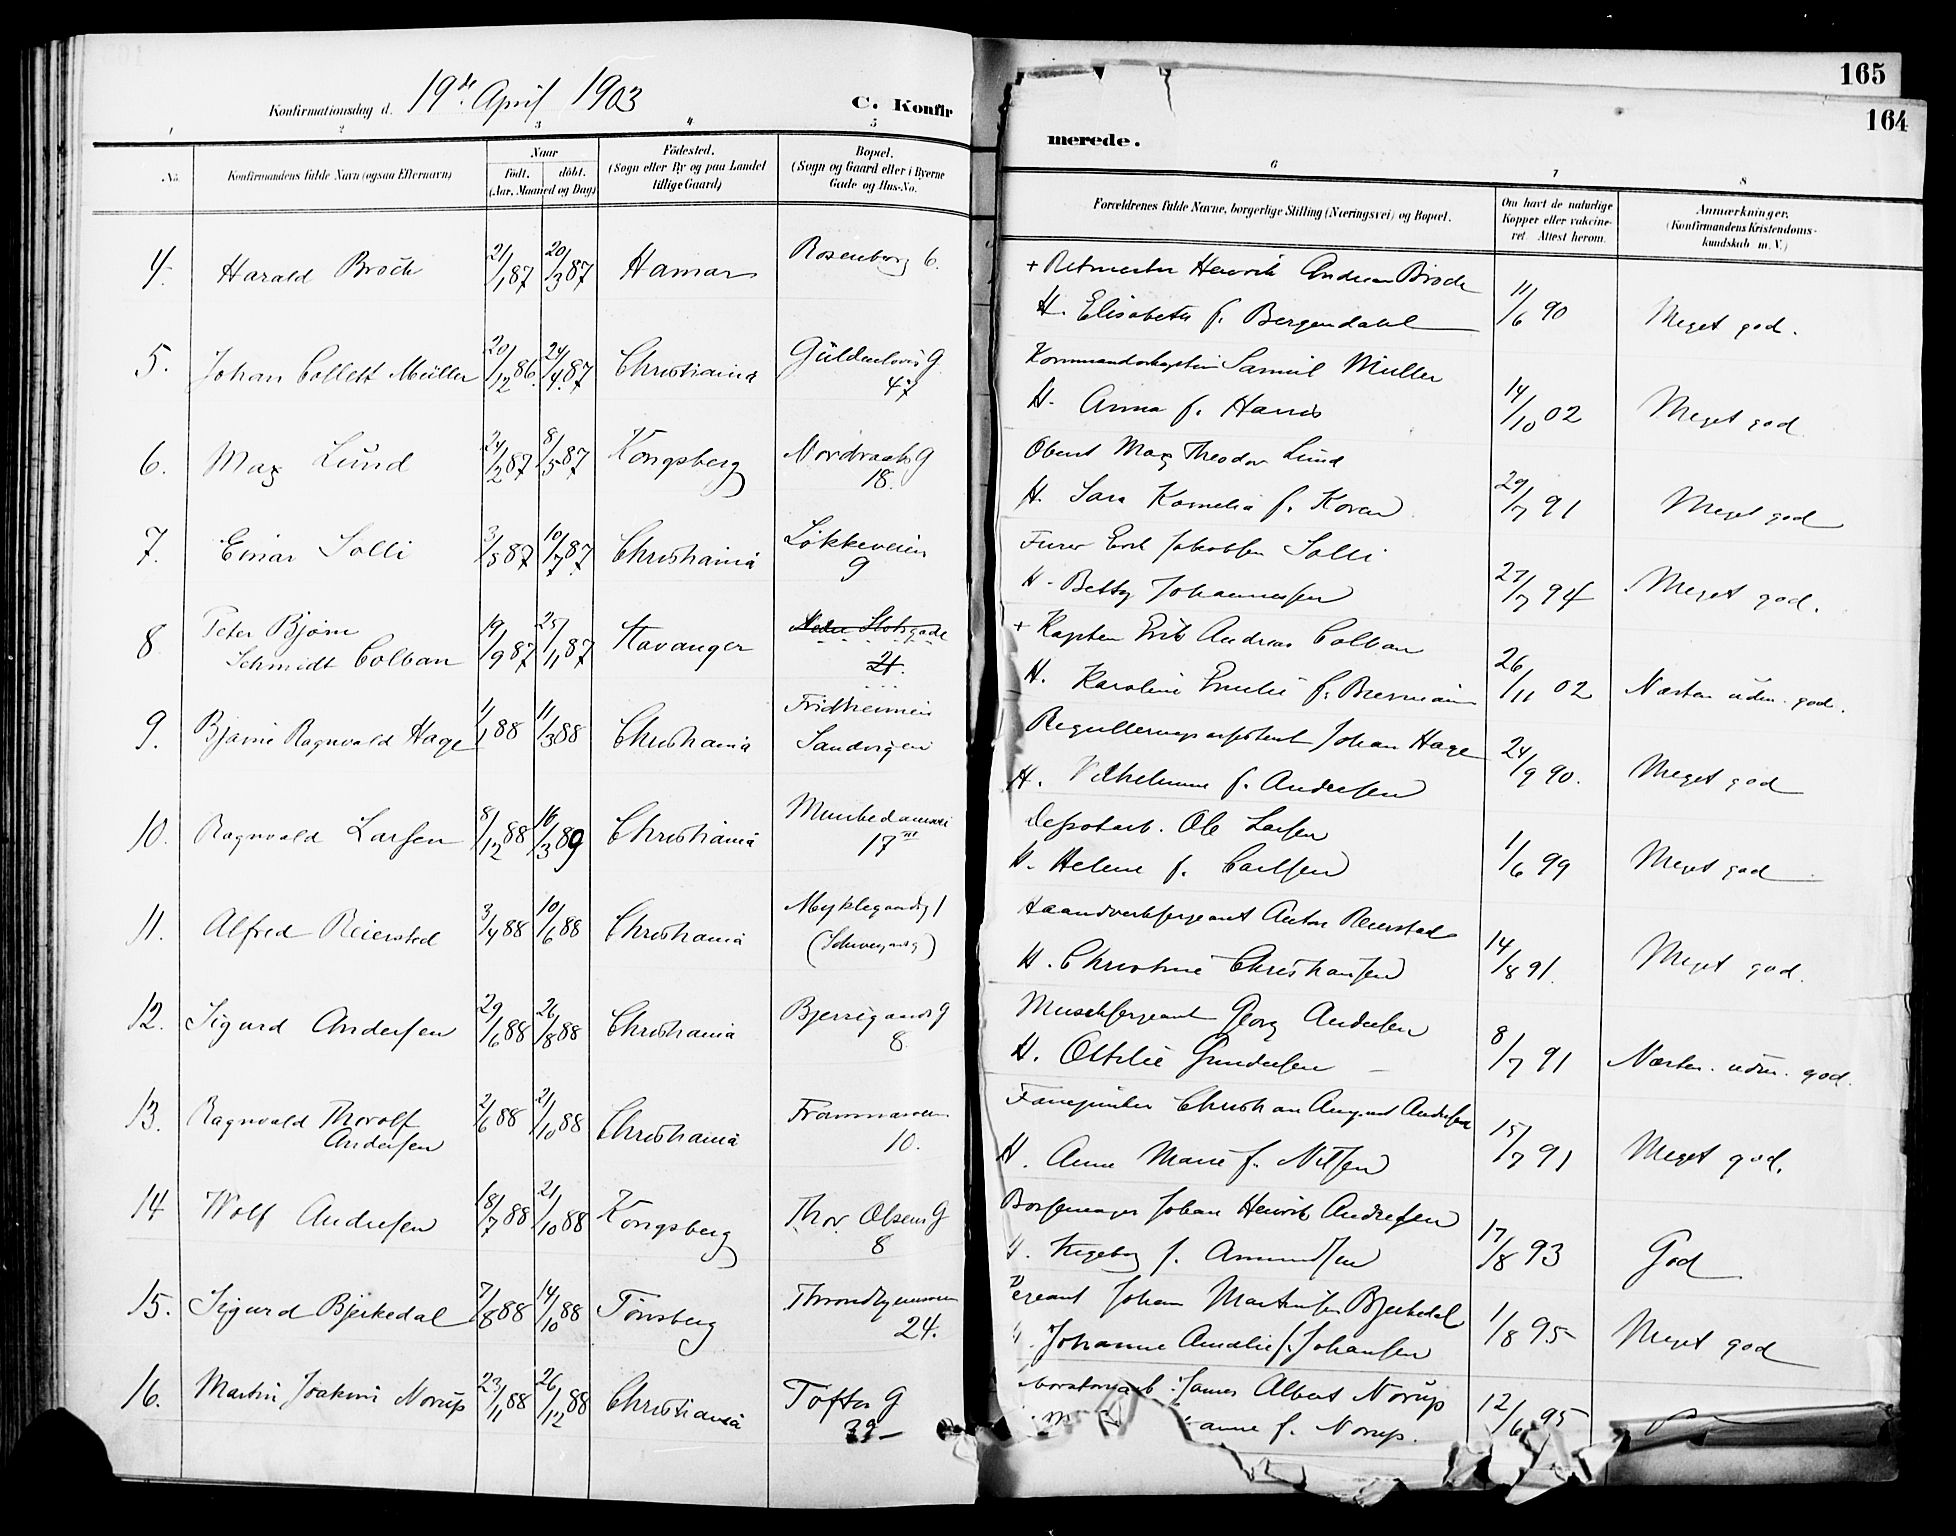 165
164
Konfirmationsdag d. 19de April 1903
C. Konfir
merede.
1 2 3 4 5 6 7 8
No.
Konfirmandens fulde Navn (ogsaa Efternavn)
Naar
födt. döbt.
(Aar, Maaned og Dag)
Födested.
(Sogn eller By og paa Landet
tillige Gaard)
Bopæl.
(Sogn og Gaard eller i Byerne
Gade og Hus-No.
Forældrenes fulde Navne, borgerlige Stilling (Næringsvei) og Bopæl.
Om havt de naturlige
Kopper eller vakcine-
ret. Attest herom.
Anmærkninger.
(Konfirmandens Kristendoms-
kundskab m. V.)
4. Harald Broch 21/1 87 20/3 87 Hamar Rosenborg 6. + Ritmester Henrik Andreas Broch
H. Elisabeth f. Bergendahl 11/6 90 Meget god.
5. Johan Collett Müller 20/12 86. 24/4 87 Christiania Güldenløves G.
47
Kommandørkaptein Samuel Müller
H. Anna f. 14/10 02 Meget god
6. Max Lund 24/2 87 8/5 87 Kongsberg Nordraaks G
18.
Oberst Max Theodor Lund
H. Sara Kornelia f. Koren 29/7 91 Meget god
7. Einar Solli 3/5 87 10/7 87 Christiania Løkkeveien
9
Furer Erik Jakobsen Solli
H. Betty Johannessen 27/7 94 Meget god.
8 Peter Bjørn
Schmidt Colban 19/9 87 25/11 87 Stavanger Nedre Slotsgade
21.
+ Kaptein Erik Andreas Colban
H. Karoline Emilie f. 26/11 02 Næsten udm. god.
9. Bjarne Ragnvald Hage 1/1 88 11/3 88 Christiania Fridheim
Sandvigen
Reguleringsassistent Johan Hage
H. Vilhelmine f. Andersen 24/9 90. Meget god
10. Ragnvald Larsen 8/12 88 16/3 89 Christiania Munkedamsvei
17
Depotarb. Ole Larsen
H. Helene f. Carlsen 1/6 99 Meget god
11. Alfred Reierstad 3/4 88 10/6 88 Christiania Myklegaardsg 1
(Schweigaardsg)
Haandverksersergeant Anton Reierstad
H. Christine Christiansen 14/8 91. Meget god.
12. Sigurd Andersen 29/6 88 26/8 88 Christiania Bjerregaards G
8.
Musiksergeant Georg Andersen
H. Ottilie Gundersen 8/7 91 Næsten udm. god.
13. Ragnvald Thorolf
Andersen 2/6 88 21/10 88 Christiania Framnæsveien
10.
Fanejunker Christian August Andersen
H. Anne Marie f. Nilsen 15/7 91 Meget god.
14 Wolf Andresen 18/7 88 21/10 88 Kongsberg Thor. Olsens G
8
Børsemager Johan Henrik Andresen
H. Ingeborg f. Amundsen 17/8 93 God
15. Sigurd Bjerkedal 7/8 88 14/10 88 Tønsberg Throndhjemsveien
24.
Johan Martinsen Bjerkedal
H. Johanne Amalie f. Johansen 1/8 95 Meget god
16. Martin Joakim Norup 23/11 88 26/12 88 Christiania Toftes G
39
James Albert Norup
f. Norup. 12/6 95